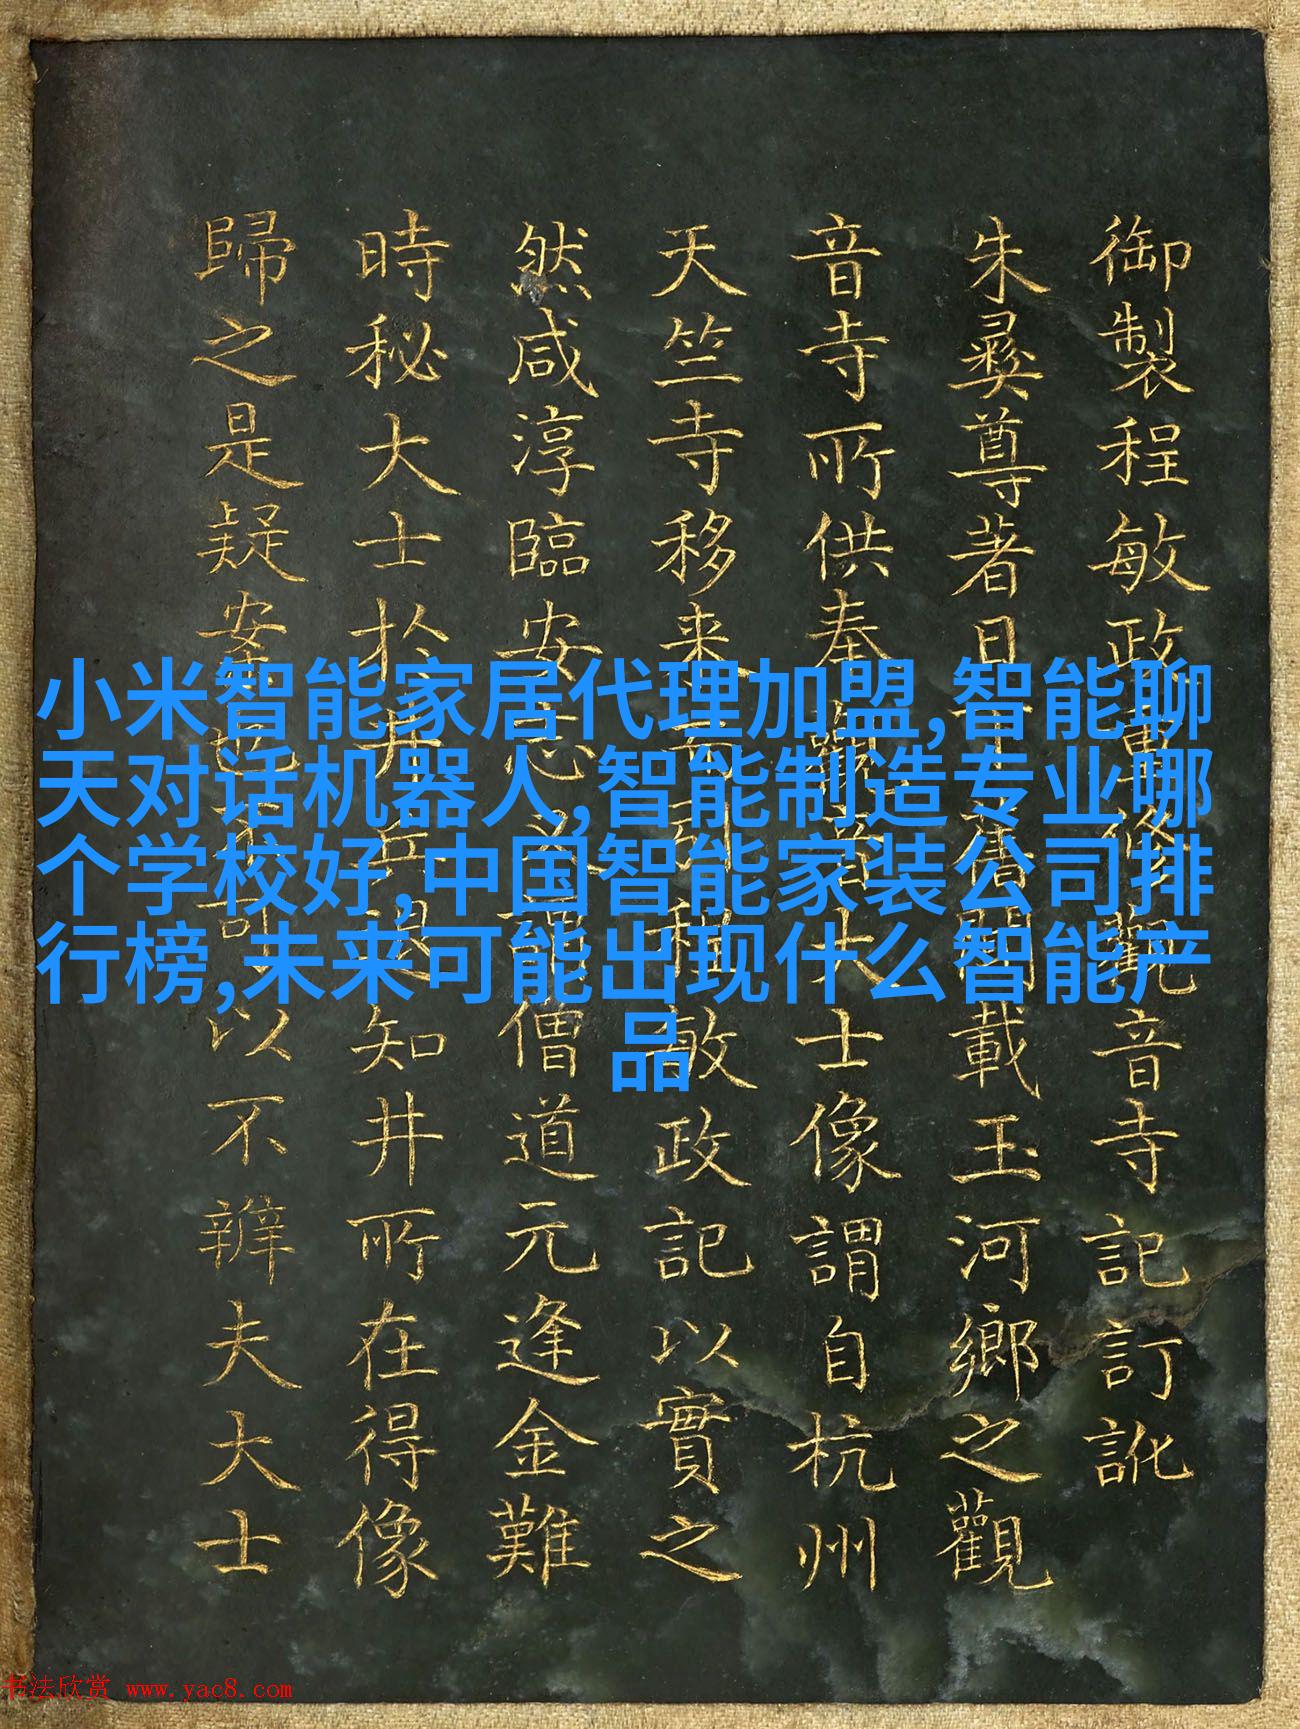 御製程敏政重修觀音寺記訂訛
朱彝尊著日下舊聞載玉河鄉之觀
音寺所供奉觀音大士像謂自杭州
天竺寺移来引程敏政記以實之
然咸淳臨安志又僧道元逢金難
時秘大士於井兵退知井所在得像
歸之是疑案也不可以不辨夫大士
小米智能家居代理加盟,智能聊
天对话机器人,智能制造专业哪
个学校好,中国智能家装公司排
行榜,未来可能出现什么智能产
品
书法欣赏 www.yac8.com